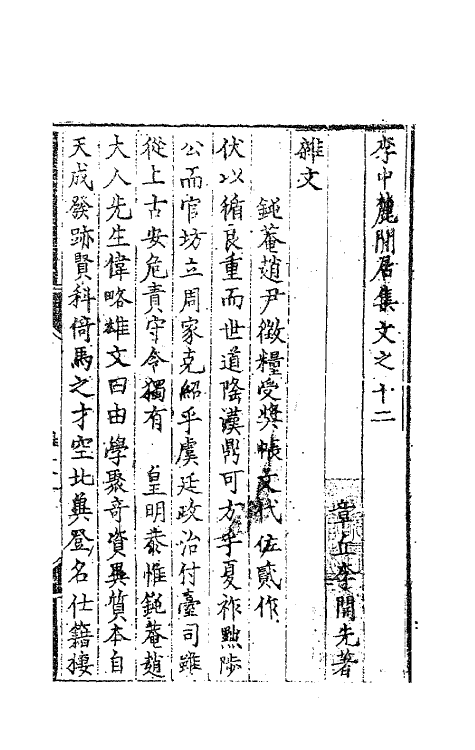 李中麓閒居集文之十二
章丘李開先著
雜文
鈍菴趙尹徵糧受奬帳文代佐貳作
伏以循良重而世道隆漢鼎可方乎夏祚黜陟
公而官坊立周家克紹乎虞廷政治付臺司雖
從上古安危責守令獨有 皇明恭惟鈍菴趙
大人先生偉略雄文固由學聚奇資異質本自
天成發跡賢科倚馬之才空北冀登名仕籍棲